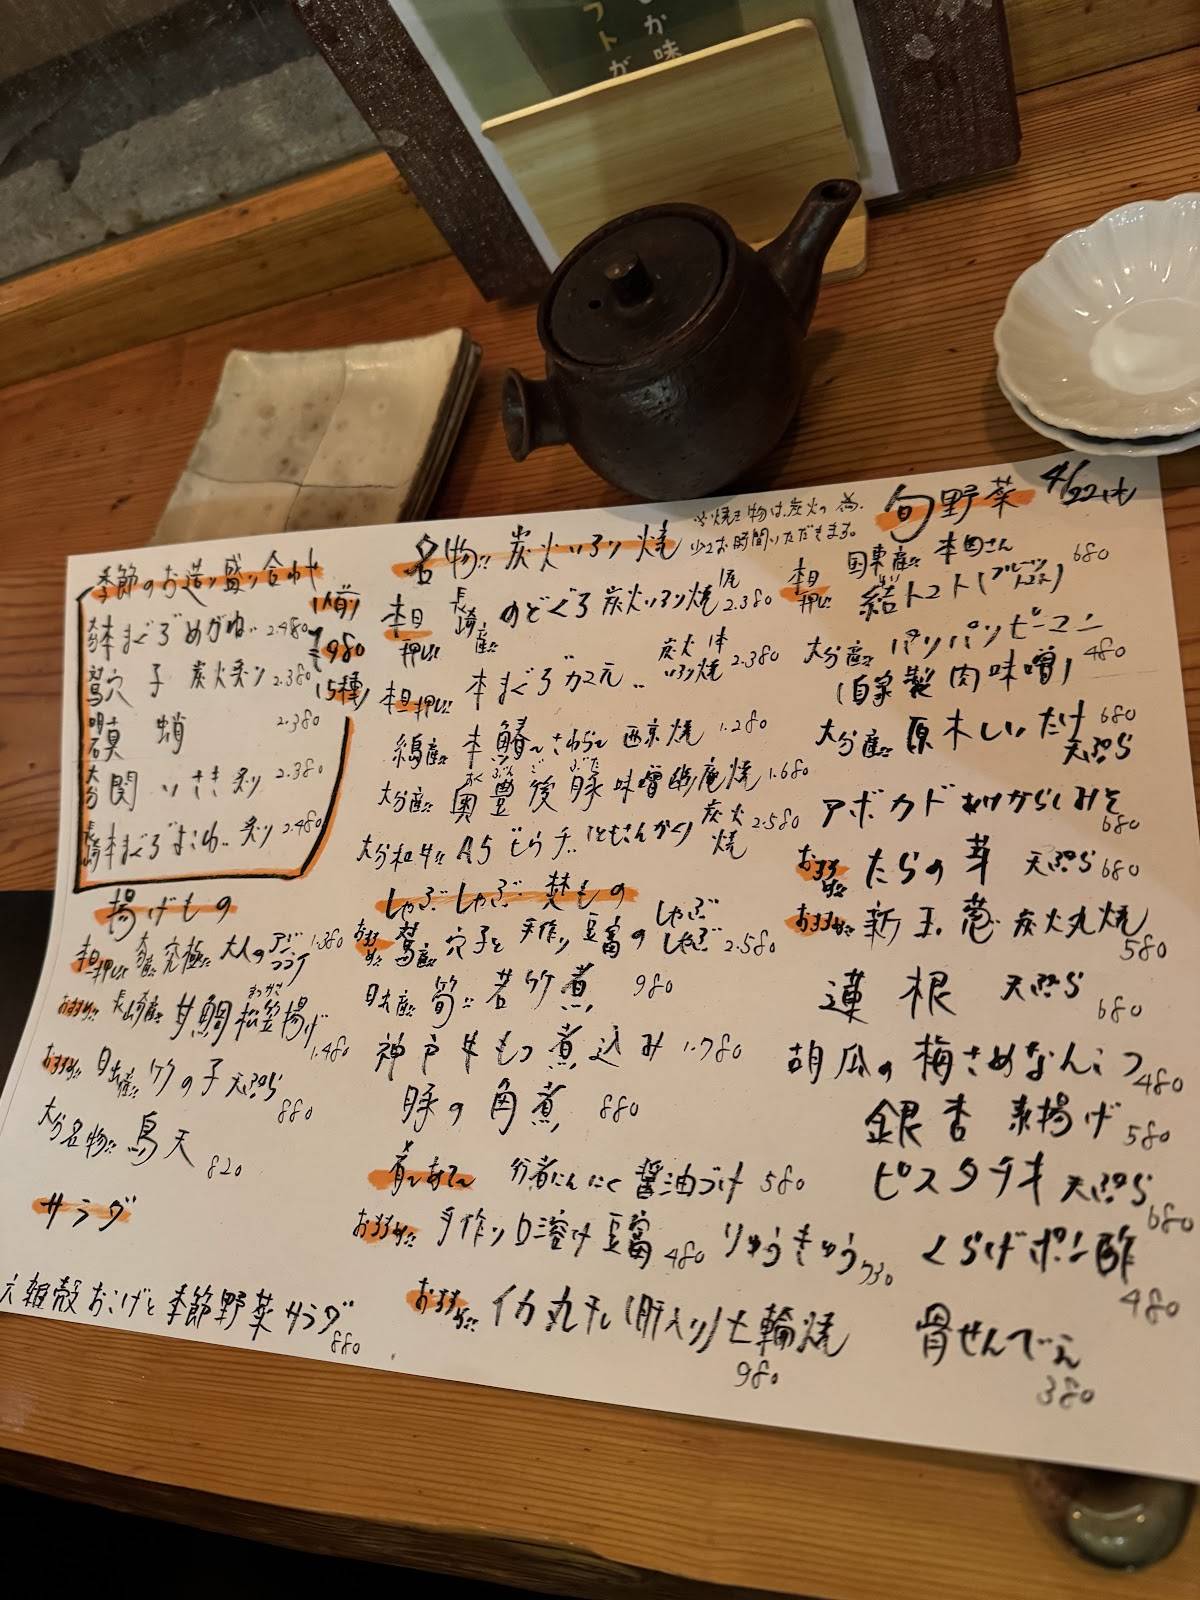 しか味
フトが
4/22(水)
季節のお造り盛り合わせ
1人前
980
(5種)
本まぐろめがね 2.480
穴子 炭火炙り 2.380
蛸 2.380
大分 関いさき炙り 2.380
長崎 本まぐろ 炙り 2.480
揚げもの
本日一押し!! 究極 大人のアジフライ 1.380
おすすめ!! 長崎産 甘鯛松笠揚げ 1.480
まつかさ
おすすめ!! 日出産 竹の子 天ぷら 880
大分名物!! 鳥天 820
サラダ
雑穀おこげと季節野菜サラダ 880
名物!! 炭火いろり焼
※焼き物は炭火の為、
少々お時間いただきます。
本日一押し!! 長崎産 のどぐろ 炭火いろり焼 1尾 2.380
本日一押し!! 本まぐろカマ元 炭火いろり焼 1本 2.380
本鰆〜さわら〜西京焼 1.280
大分産 奥豊後豚 味噌幽庵焼 1.680
おくぶんごぶた
大分和牛 A5 炭火焼 2.580
しゃぶしゃぶ 焚もの
おすすめ!! 穴子と手作り豆腐のしゃぶしゃぶ 2.580
日出産 筍 若竹煮 980
神戸牛もつ煮込み 1.780
豚の角煮 880
肴〜あて〜
行者にんにく醤油づけ 580
おすすめ!! 手作り口溶け豆富 480
りゅうきゅう 730
おすすめ!! イカ丸干し(肝入り)七輪焼 980
旬野菜
本日一押し!! 国東産 本田さん 結トマト(フルーツトマト) 680
大分産 パリパリピーマン
(自家製肉味噌) 480
大分産 原木しいたけ 天ぷら 680
アボカド からしみそ 680
おすすめ!! たらの芽 天ぷら 680
おすすめ!! 新玉葱 炭火丸焼 580
蓮根 天ぷら 680
胡瓜の梅さめなんこつ 480
銀杏 素揚げ 580
ピスタチオ 天ぷら 680
くらげポン酢 480
骨せんべえ 380